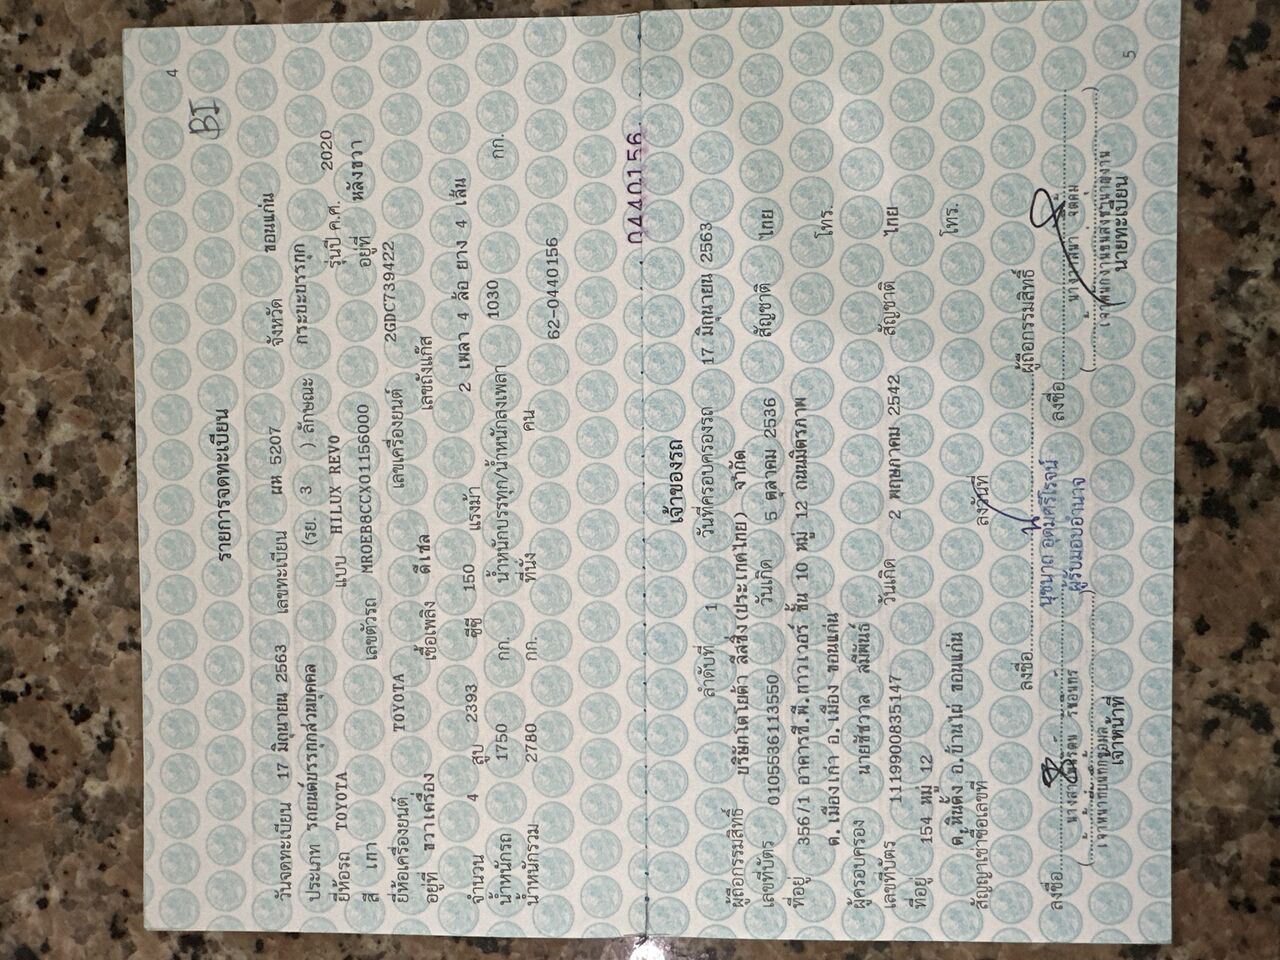 4
BI
รายการจดทะเบียน
วันจดทะเบียน 17 มิถุนายน 2563 เลขทะเบียน ผห 5207 จังหวัด ขอนแก่น
ประเภท รถยนต์บรรทุกส่วนบุคคล (รย. 3 ) ลักษณะ กระบะบรรทุก
ยี่ห้อรถ TOYOTA แบบ HILUX REVO รุ่นปี ค.ศ. 2020
สี เทา เลขตัวรถ MR0EB8CCX01156000 อยู่ที่ หลังขวา
ยี่ห้อเครื่องยนต์ TOYOTA เลขเครื่องยนต์ 2GDC739422
อยู่ที่ ขวาเครื่อง เชื้อเพลิง ดีเซล เลขถังแก๊ส
จำนวน 4 สูบ 2393 ซีซี 150 แรงม้า 2 เพลา 4 ล้อ ยาง 4 เส้น
น้ำหนักรถ 1750 กก. น้ำหนักบรรทุก/น้ำหนักลงเพลา 1030 กก.
น้ำหนักรวม 2780 กก. ที่นั่ง คน 62-0440156
0440156
เจ้าของรถ
ลำดับที่ 1 วันที่ครอบครองรถ 17 มิถุนายน 2563
ผู้ถือกรรมสิทธิ์ บริษัทโตโยต้า ลีสซิ่ง(ประเทศไทย) จำกัด
เลขที่บัตร 0105536113550 วันเกิด 5 ตุลาคม 2536 สัญชาติ ไทย
ที่อยู่ 356/1 อาคารซี.พี.ทาวเวอร์ ชั้น 10 หมู่ 12 ถนนมิตรภาพ
ต.เมืองเก่า อ.เมือง ขอนแก่น โทร.
ผู้ครอบครอง นายชัชวาล สมีพันธ์
เลขที่บัตร 1119900835147 วันเกิด 2 พฤษภาคม 2542 สัญชาติ ไทย
ที่อยู่ 154 หมู่ 12
ต.หินตั้ง อ.บ้านไผ่ ขอนแก่น โทร.
สัญญาเช่าซื้อเลขที่ ลงวันที่
ลงชื่อ ผู้ถือกรรมสิทธิ์
นุชนาถ อุดมศรีโรจน์
ผู้รับมอบอำนาจ
ลงชื่อ ลงชื่อ
เจ้าหน้าที่บันทึกข้อมูล เจ้าพนักงานขนส่งชำนาญงาน
เจ้าหน้าที่ นายทะเบียน
5